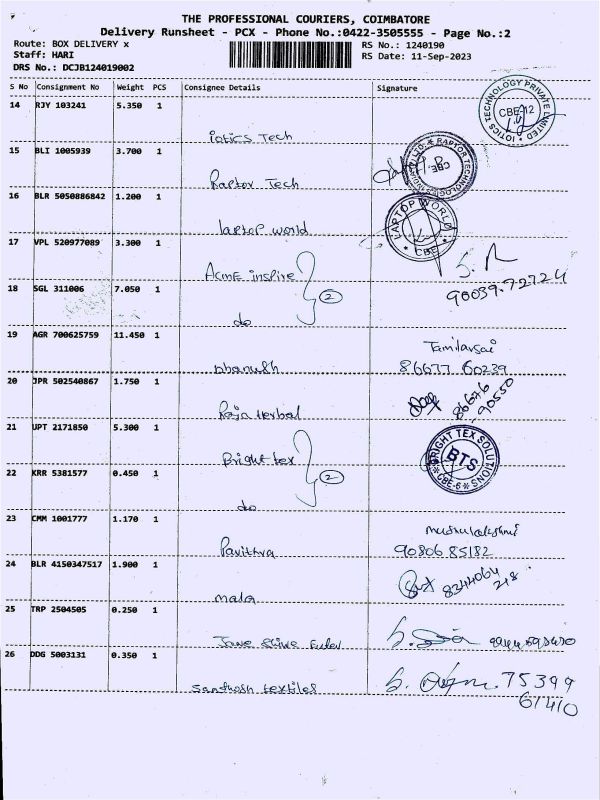 THE PROFESSIONAL COURIERS, COIMBATORE
Delivery Runsheet - PCX - Phone No.:0422-3505555 - Page No.:2
Route: BOX DELIVERY x
RS No.: 1240190
Staff: HARI
RS Date: 11-Sep-2023
DRS No.: DCJB124019002
S No Consignment No Weight PCS Consignee Details Signature
14 RJY 103241 5.350 1
iotics Tech
IOTICS TECHNOLOGY PRIVATE LIMITED
CBE-12
15 BLI 1005939 3.700 1
Raptor Tech
RAPTOR TECHNOLOGIES
CBE
16 BLR 5050886842 1.200 1
laptop world
LAPTOP WORLD
CBE
17 VPL 520977089 3.300 1
ACME inspire
2
90039.72724
18 SGL 311006 7.050 1
do
19 AGR 700625759 11.450 1
Dhanush
Tamilarsai
86677 60239
20 JPR 502540867 1.750 1
Raja Herbal
86676
90550
21 UPT 2171850 5.300 1
Bright tex
2
BRIGHT TEX SOLUTIONS
BTS
CBE-6
22 KRR 5381577 0.450 1
do
23 CMM 1001777 1.170 1
Pavithra
90806 85182
24 BLR 4150347517 1.900 1
mala
8344064
218
25 TRP 2504505 0.250 1
26 DDG 5003131 0.350 1
Santhosh textiles
75399
61410